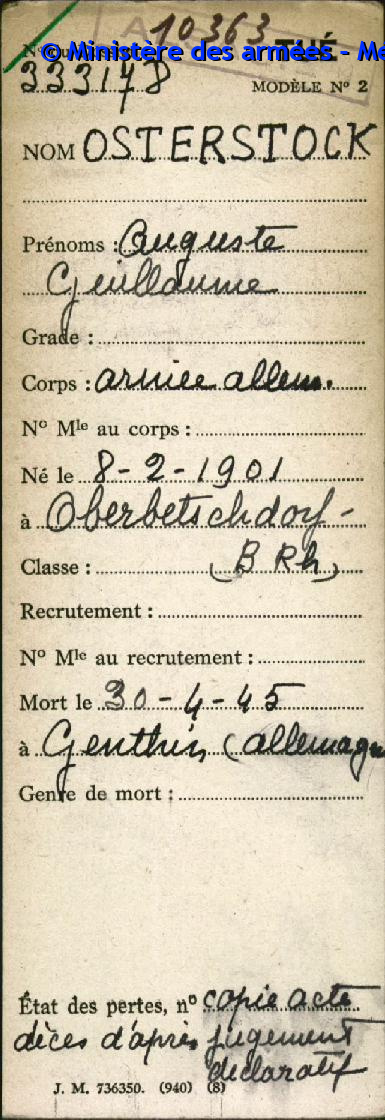 10363
© Ministère des armées - Mé
TUÉ
333178
MODÈLE Nº 2
NOM OSTERSTOCK
Prénoms : Auguste
Guilldaume
Grade :
Corps : armée allem.
Nº Mle au corps :
Né le 8-2-1901
à Oberbetschdorf -
Classe : (B Rh)
Recrutement :
Nº Mle au recrutement :
Mort le 30-4-45
à Genthin (allemagn
Genre de mort :
État des pertes, nº copie acte
décès d'après jugement
déclaratif
J. M. 736350. (940) (8)